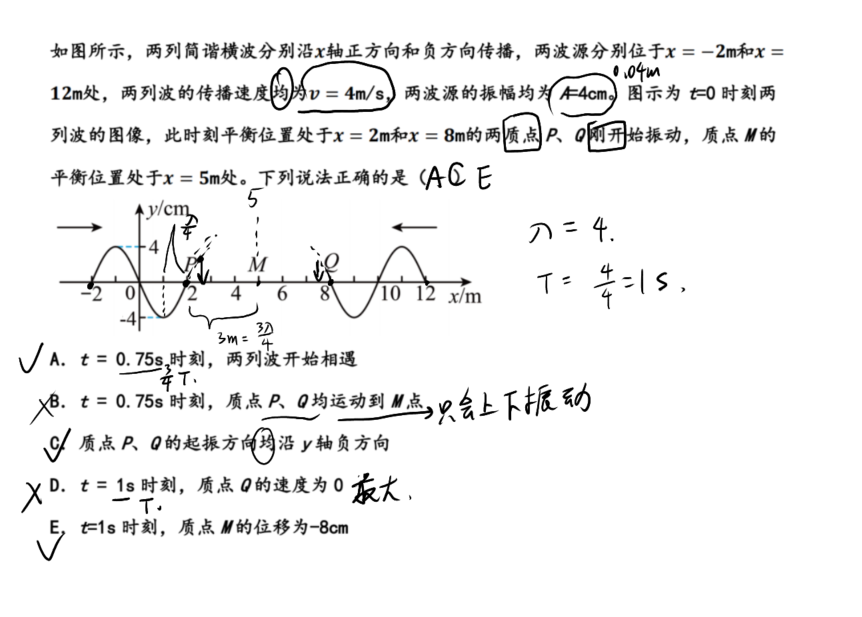 如图所示，两列简谐横波分别沿x轴正方向和负方向传播，两波源分别位于x = −2m和x =
0.04m
12m处，两列波的传播速度均为v = 4m/s，两波源的振幅均为 A=4cm。图示为 t=0 时刻两
列波的图像，此时刻平衡位置处于x = 2m和x = 8m的两质点 P、Q 刚开始振动，质点 M的
平衡位置处于x = 5m处。下列说法正确的是（AC E
5
y/cm λ/4
4
P M Q
-2 0 2 4 6 8 10 12 x/m
-4
3m = 3λ/4
λ = 4.
T = 4/4 = 1 s.
✓A. t = 0.75s 时刻，两列波开始相遇
3/4 T.
×B. t = 0.75s 时刻，质点 P、Q 均运动到 M 点 → 只会上下振动
✓C. 质点 P、Q 的起振方向均沿 y 轴负方向
×D. t = 1s 时刻，质点 Q 的速度为 0 最大.
T.
✓E. t=1s 时刻，质点 M 的位移为-8cm